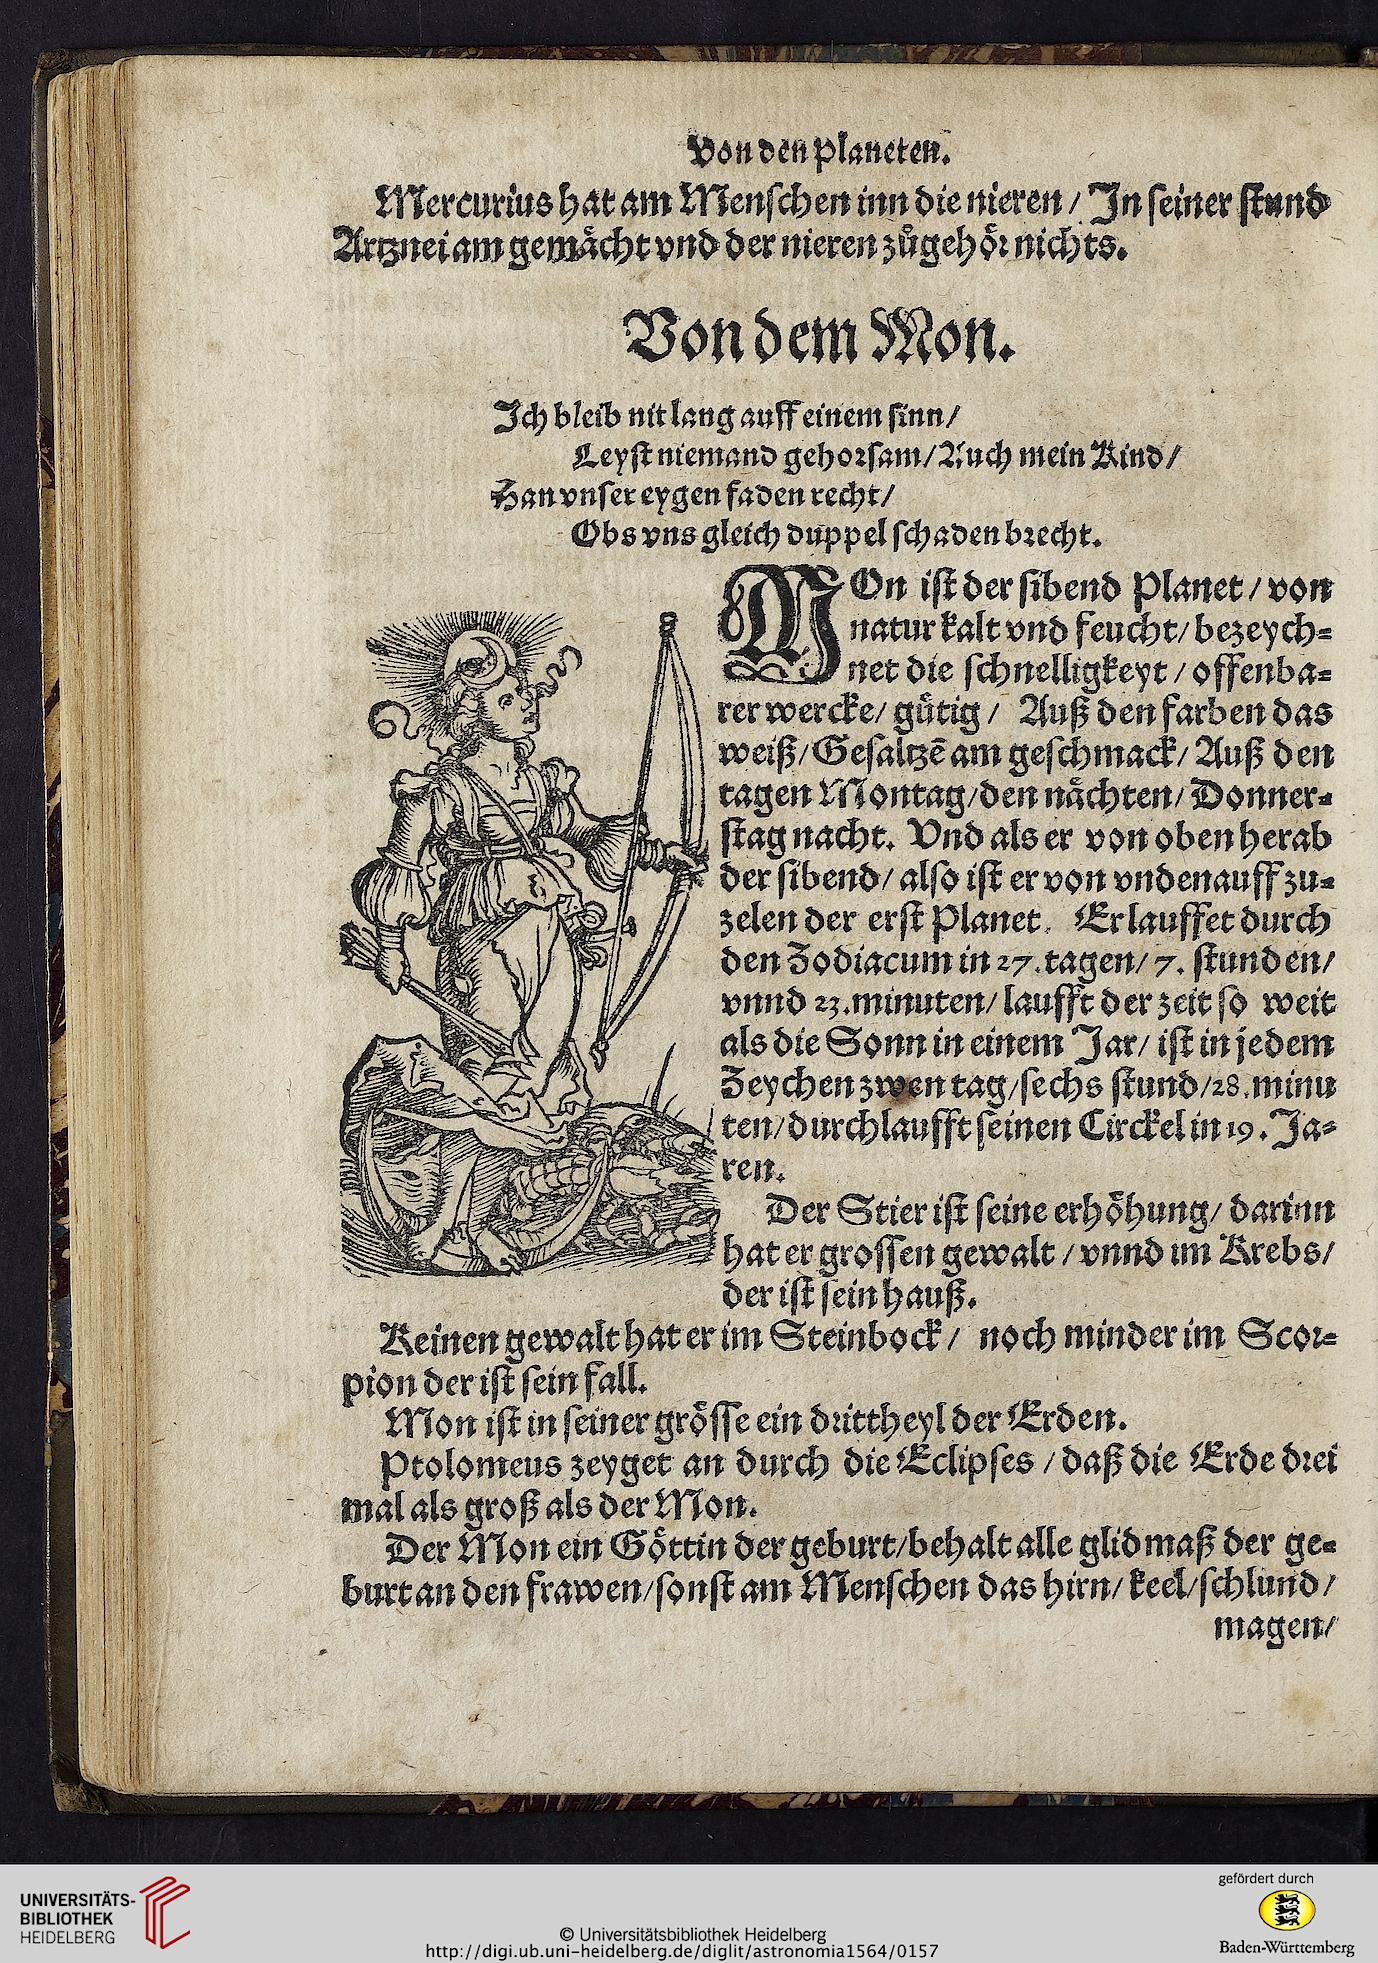 Von den Planeten.
Mercurius hat am Menschen inn die nieren / In seiner stund
Artznei am gemächt vnd der nieren zůgehör nichts.
Von dem Mon.
Ich bleib nit lang auff einem sinn /
Leyst niemand gehorsam / Auch mein Kind /
Han vnser eygen faden recht /
Obs vns gleich duppel schaden brecht.
MOn ist der sibend Planet / von
natur kalt vnd feucht / bezeych=
net die schnelligkeyt / offenba=
rer wercke / gütig / Auß den farben das
weiß / Gesaltzē am geschmack / Auß den
tagen Montag / den nächten / Donner=
stag nacht. Vnd als er von oben herab
der sibend / also ist er von vnden auff zu=
zelen der erst Planet. Er lauffet durch
den Zodiacum in 27. tagen / 7. stunden /
vnnd 23. minuten / laufft der zeit so weit
als die Sonn in einem Jar / ist in jedem
Zeychen zwen tag / sechs stund / 28. minu
ten / durchlaufft seinen Circkel in 19. Ja=
ren.
Der Stier ist seine erhöhung / darinn
hat er grossen gewalt / vnnd im Krebs /
der ist sein hauß.
Keinen gewalt hat er im Steinbock / noch minder im Scor=
pion der ist sein fall.
Mon ist in seiner grösse ein drittheyl der Erden.
Ptolomeus zeyget an durch die Eclipses / daß die Erde drei
mal als groß als der Mon.
Der Mon ein Göttin der geburt / behalt alle glidmaß der ge=
burt an den frawen / sonst am Menschen das hirn / keel / schlund /
magen /
UNIVERSITÄTS-
BIBLIOTHEK
HEIDELBERG
© Universitätsbibliothek Heidelberg
http://digi.ub.uni-heidelberg.de/diglit/astronomia1564/0157
gefördert durch
Baden-Württemberg